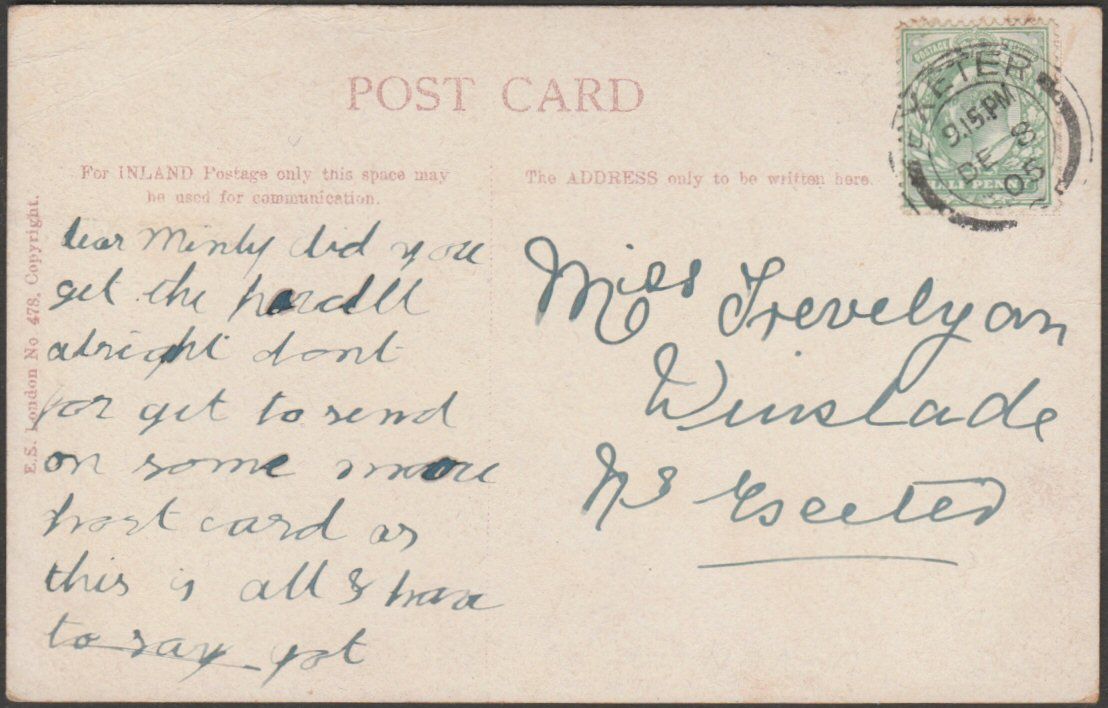 POST CARD
For INLAND Postage only this space may
be used for communication.
The ADDRESS only to be written here.
E.S. London No 478, Copyright.
POSTAGE
HALFPENNY
EXETER
9.15.PM
DE 8
05
dear Minly did you
get the parcell
alright dont
for get to send
on some more
post card as
this is all I have
to say got
Miss Trevelyan
Winslade
Nr Exeter